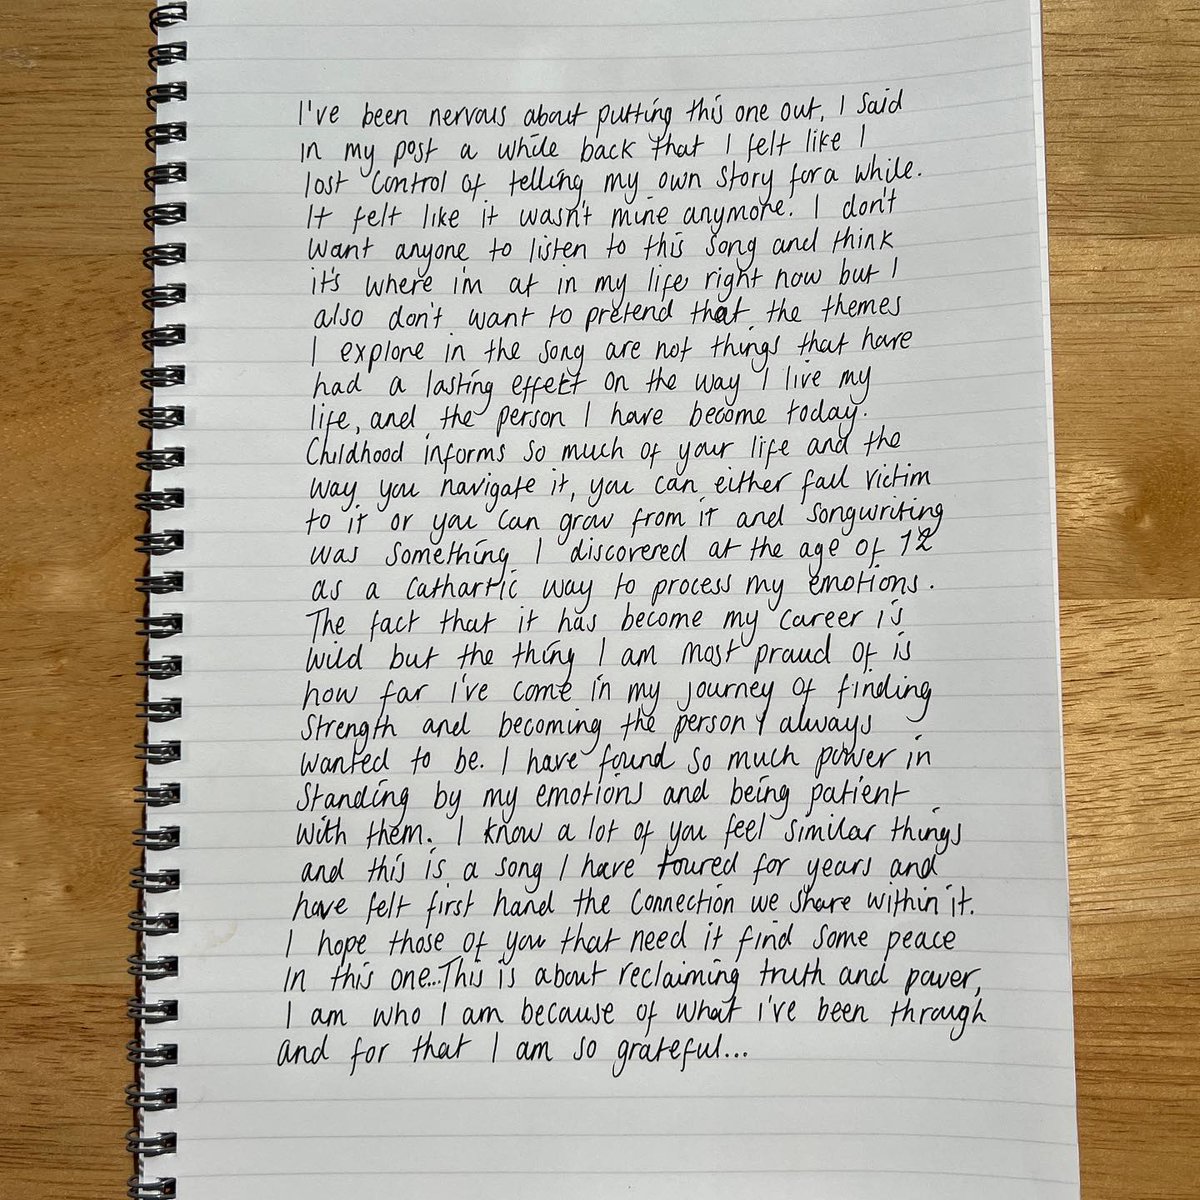 I've been nervous about putting this one out, I said
in my post a while back that I felt like I
lost control of telling my own story for a while.
It felt like it wasn't mine anymore. I don't
want anyone to listen to this song and think
it's where i'm at in my life right now but I
also don't want to pretend that the themes
I explore in the song are not things that have
had a lasting effect on the way I live my
life, and the person I have become today.
Childhood informs so much of your life and the
way you navigate it, you can either fall victim
to it or you can grow from it and songwriting
was something I discovered at the age of 12
as a cathartic way to process my emotions.
The fact that it has become my career is
wild but the thing I am most proud of is
how far i've come in my journey of finding
strength and becoming the person I always
wanted to be. I have found so much power in
standing by my emotions and being patient
with them. I know a lot of you feel similar things
and this is a song I have toured for years and
have felt first hand the connection we share within it.
I hope those of you that need it find some peace
in this one...This is about reclaiming truth and power,
I am who I am because of what i've been through
and for that I am so grateful...